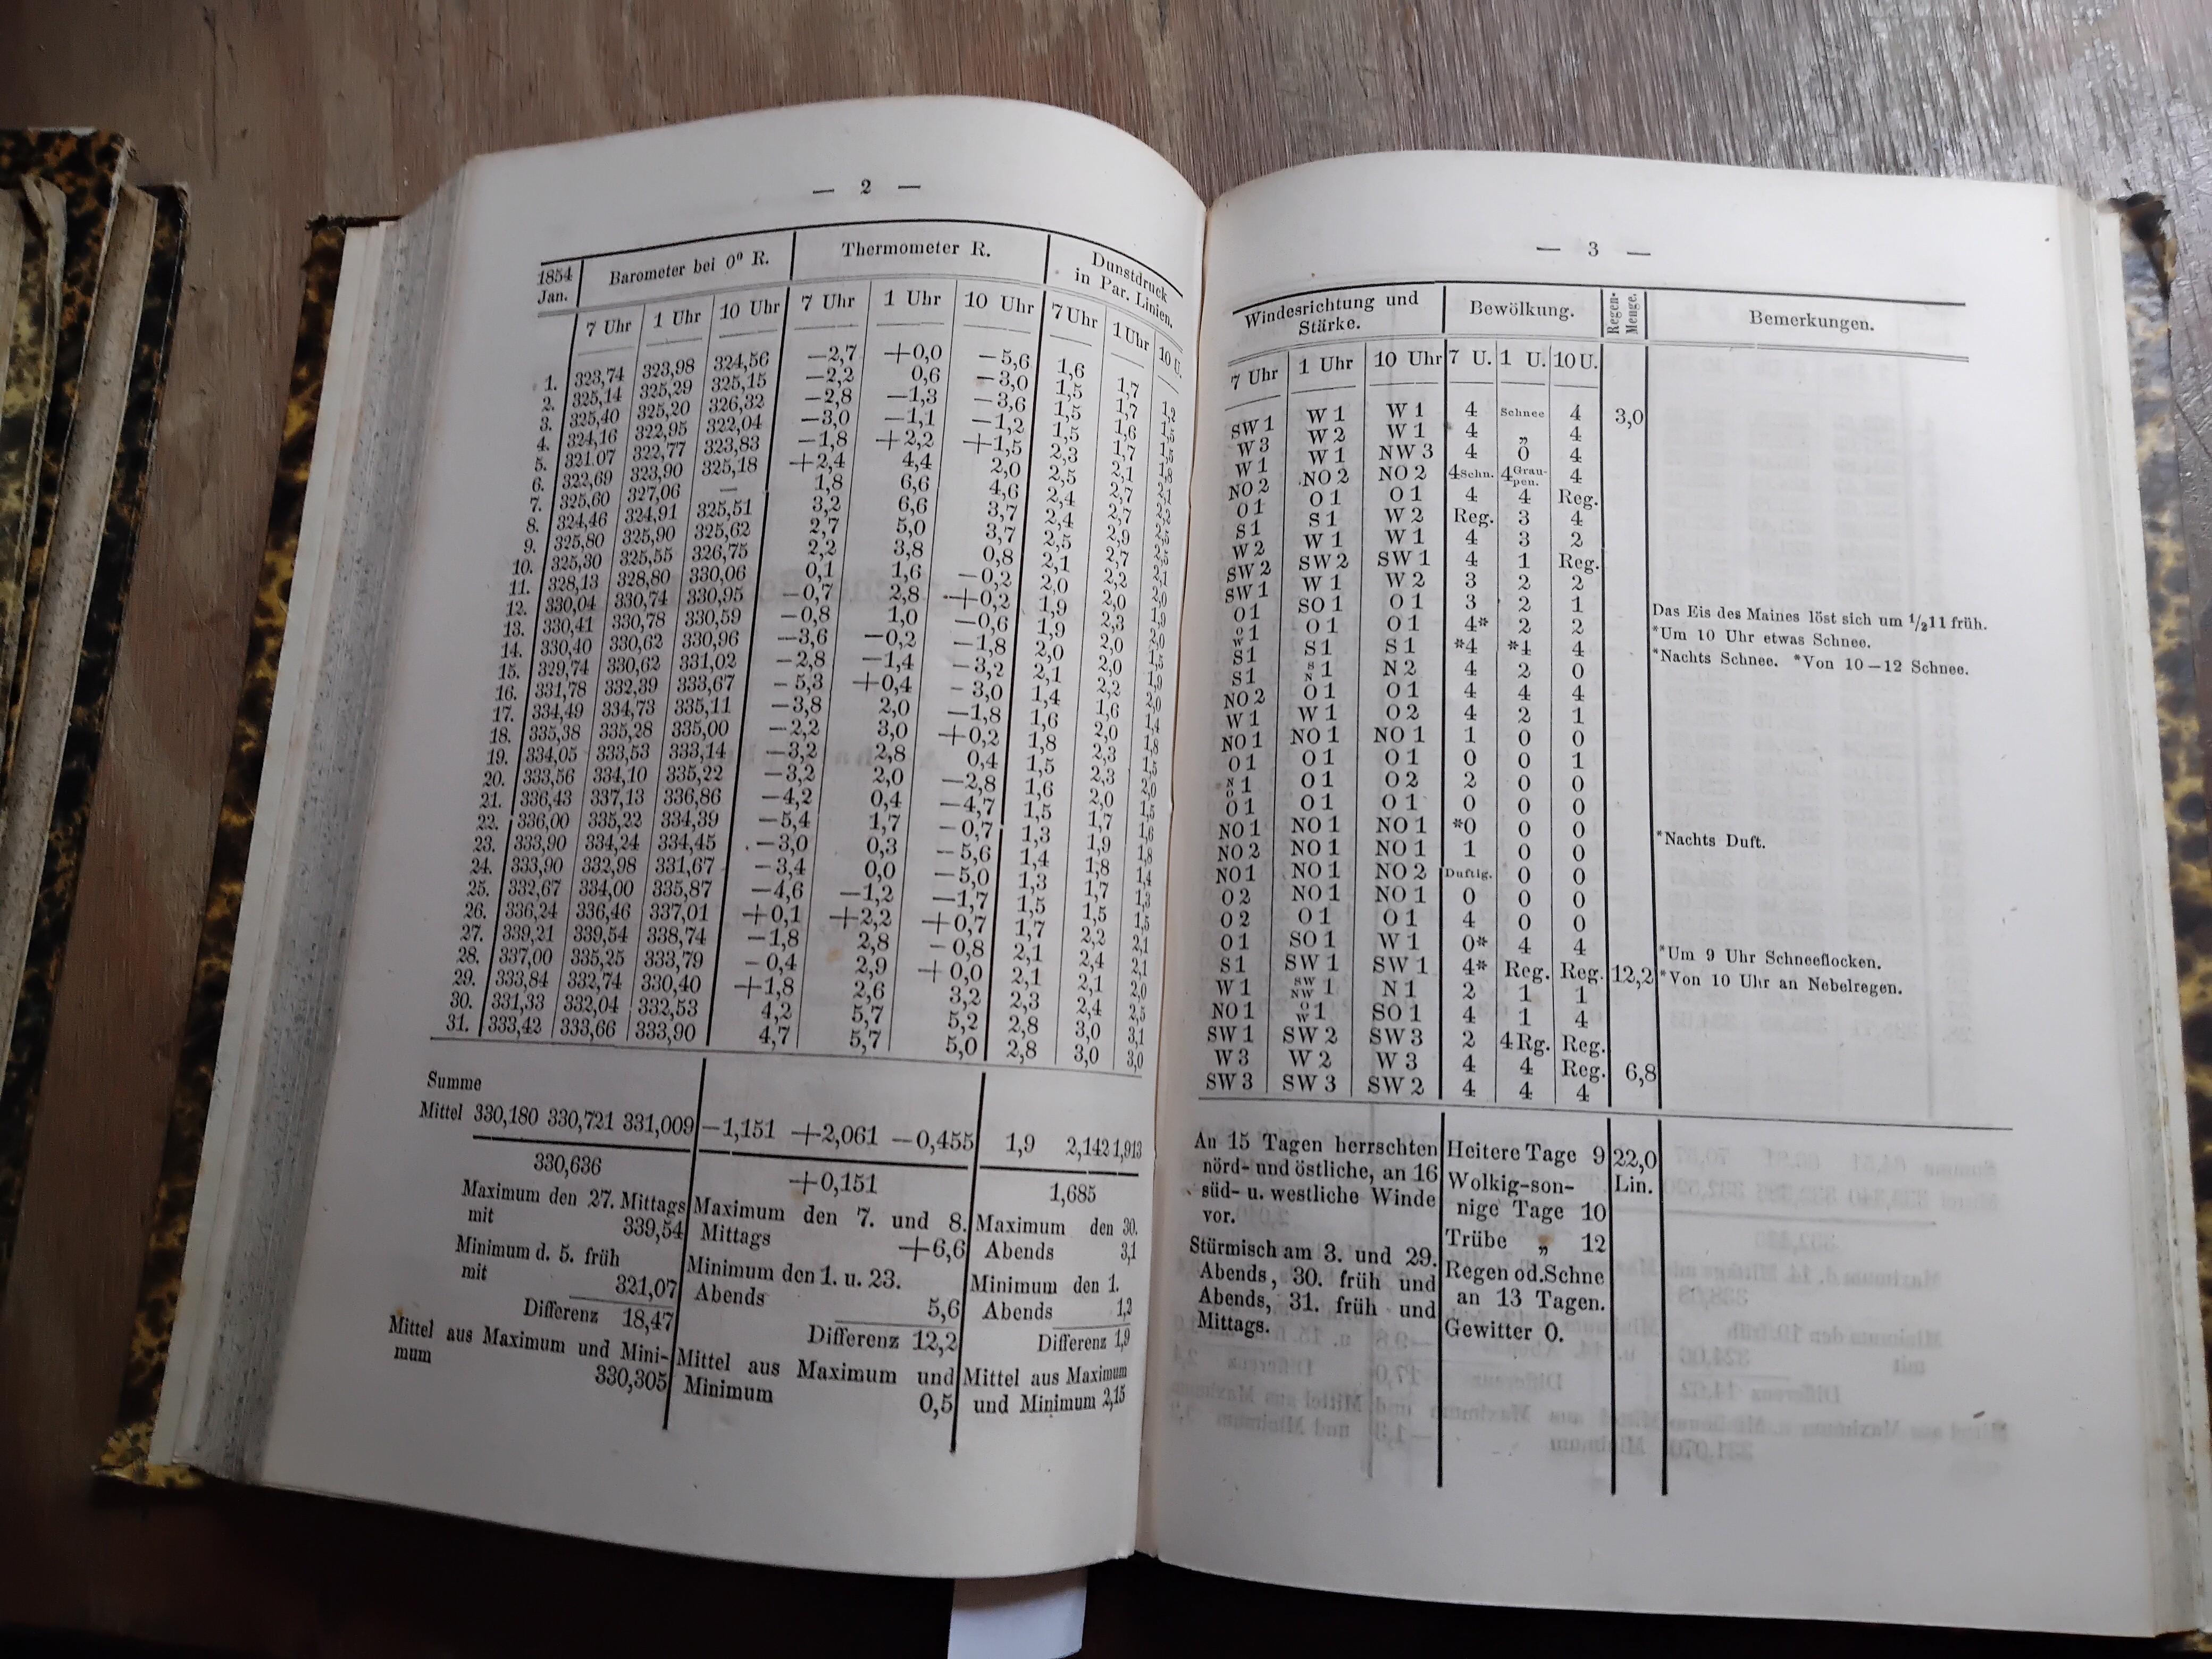 — 2 —
1854 Jan. Barometer bei 0⁰ R. Thermometer R. Dunstdruck in Par. Linien.
7 Uhr 1 Uhr 10 Uhr 7 Uhr 1 Uhr 10 Uhr 7 Uhr 1 Uhr 10 U.
1. 323,74 323,98 324,56 —2,7 +0,0 —5,6 1,6 1,7 1,2
2. 325,14 325,29 325,15 —2,2 0,6 —3,0 1,5 1,7
3. 325,40 325,20 326,32 —2,8 —1,3 —3,6 1,5 1,6
4. 324,16 322,95 322,04 —3,0 —1,1 —1,2 1,5 1,7
5. 321.07 322,77 323,83 —1,8 +2,2 +1,5 2,3 2,1
6. 322,69 323,90 325,18 +2,4 4,4 2,0 2,5 2,7
7. 325,60 327,06 — 1,8 6,6 4,6 2,4 2,7
8. 324,46 324,91 325,51 3,2 6,6 3,7 2,4 2,9
9. 325,80 325,90 325,62 2,7 5,0 3,7 2,5 2,7
10. 325,30 325,55 326,75 2,2 3,8 0,8 2,1 2,2
11. 328,13 328,80 330,06 0,1 1,6 —0,2 2,0 2,0
12. 330,04 330,74 330,95 —0,7 2,8 +0,2 1,9 2,3 2,0
13. 330,41 330,78 330,59 —0,8 1,0 —0,6 1,9 2,0 1,5
14. 330,40 330,62 330,96 —3,6 —0,2 —1,8 2,0 2,0 1,9
15. 329,74 330,62 331,02 —2,8 —1,4 —3,2 2,1 2,2 2,0
16. 331,78 332,39 333,67 —5,3 +0,4 —3,0 1,4 1,6 1,4
17. 334,49 334,73 335,11 —3,8 2,0 —1,8 1,6 2,0 1,8
18. 335,38 335,28 335,00 —2,2 3,0 +0,2 1,8 2,3 1,5
19. 334,05 333,53 333,14 —3,2 2,8 0,4 1,5 2,3 2,0
20. 333,56 334,10 335,22 —3,2 2,0 —2,8 1,6 2,0 1,5
21. 336,43 337,13 336,86 —4,2 0,4 —4,7 1,5 1,7 1,6
22. 336,00 335,22 334,39 —5,4 1,7 —0,7 1,3 1,9 1,8
23. 333,90 334,24 334,45 —3,0 0,3 —5,6 1,4 1,8 1,4
24. 333,90 332,98 331,67 —3,4 0,0 —5,0 1,3 1,7 1,3
25. 332,67 334,00 335,87 —4,6 —1,2 —1,7 1,5 1,5 1,5
26. 336,24 336,46 337,01 +0,1 +2,2 +0,7 1,7 2,2 2,1
27. 339,21 339,54 338,74 —1,8 2,8 —0,8 2,1 2,4 2,1
28. 337,00 335,25 333,79 —0,4 2,9 +0,0 2,1 2,1 2,0
29. 333,84 332,74 330,40 +1,8 2,6 3,2 2,3 2,4 2,5
30. 331,33 332,04 332,53 4,2 5,7 5,2 2,8 3,0 3,1
31. 333,42 333,66 333,90 4,7 5,7 5,0 2,8 3,0 3,0
Summe
Mittel 330,180 330,721 331,009 —1,151 +2,061 —0,455 1,9 2,142 1,913
330,636 +0,151 1,685
Maximum den 27. Mittags
mit 339,54
Minimum d. 5. früh
mit 321,07
Differenz 18,47
Mittel aus Maximum und Mini-
mum 330,305
Maximum den 7. und 8.
Mittags +6,6
Minimum den 1. u. 23.
Abends 5,6
Differenz 12,2
Mittel aus Maximum und
Minimum 0,5
Maximum den 30.
Abends 3,1
Minimum den 1.
Abends 1,2
Differenz 1,9
Mittel aus Maximum
und Minimum 2,15
— 3 —
Windesrichtung und Stärke. Bewölkung. Regen-Menge. Bemerkungen.
7 Uhr 1 Uhr 10 Uhr 7 U. 1 U. 10 U.
SW 1 W 1 W 1 4 Schnee 4 3,0
W 3 W 2 W 1 4 „ 4
W 1 W 1 NW 3 4 0 4
NO 2 NO 2 NO 2 4 Schn. 4 Grau-pen. 4
O 1 O 1 O 1 4 4 Reg.
S 1 S 1 W 2 Reg. 3 4
W 2 W 1 W 1 4 3 2
SW 2 SW 2 SW 1 4 1 Reg.
SW 1 W 1 W 2 3 2 2
O 1 SO 1 O 1 3 2 1 Das Eis des Maines löst sich um 1/211 früh.
O W 1 O 1 O 1 4* 2 2 *Um 10 Uhr etwas Schnee.
S 1 S 1 S 1 *4 *4 4 *Nachts Schnee. *Von 10—12 Schnee.
S 1 S N 1 N 2 4 2 0
NO 2 O 1 O 1 4 4 4
W 1 W 1 O 2 4 2 1
NO 1 NO 1 NO 1 1 0 0
O 1 O 1 O 1 0 0 1
N O 1 O 1 O 2 2 0 0
O 1 O 1 O 1 0 0 0
NO 1 NO 1 NO 1 *0 0 0 *Nachts Duft.
NO 2 NO 1 NO 1 1 0 0
NO 1 NO 1 NO 2 Duftig. 0 0
O 2 NO 1 NO 1 0 0 0
O 2 O 1 O 1 4 0 0
O 1 SO 1 W 1 0* 4 4 *Um 9 Uhr Schneeflocken.
S 1 SW 1 SW 1 4* Reg. Reg. 12,2 *Von 10 Uhr an Nebelregen.
W 1 SW NW 1 N 1 2 1 1
NO 1 O W 1 SO 1 4 1 4
SW 1 SW 2 SW 3 2 4 Rg. Reg.
W 3 W 2 W 3 4 4 Reg. 6,8
SW 3 SW 3 SW 2 4 4 4
An 15 Tagen herrschten
nörd- und östliche, an 16
süd- u. westliche Winde
vor.
Stürmisch am 3. und 29.
Abends, 30. früh und
Abends, 31. früh und
Mittags.
Heitere Tage 9
Wolkig-son-
nige Tage 10
Trübe „ 12
Regen od.Schne
an 13 Tagen.
Gewitter 0.
22,0
Lin.